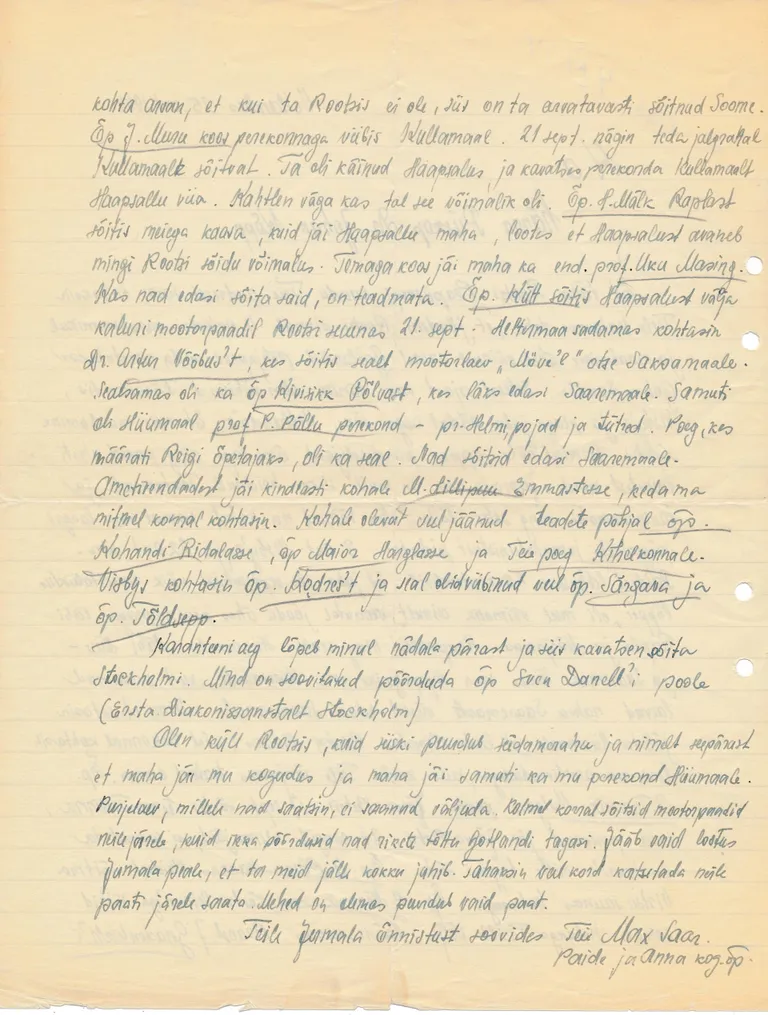 kohta arvan, et kui ta Rootsis ei ole, siis on ta arvatavasti sõitnud Soome.
Õp J. Muru koos perekonnaga viibis Kullamaal. 21 sept. nägin teda jalgrattal
Kullamaale sõitvat. Ta oli käinud Haapsalus, ja kavatses perekonda Kullamaalt
Haapsallu viia. Kahtlen väga kas tal see võimalik oli. Õp. H. Mälk Raplast
sõitis meiega kaasa, kuid jäi Haapsallu maha, lootes et Haapsalust avaneb
mingi Rootsi sõidu võimalus. Temaga koos jäi maha ka end. prof. Uku Masing.
Kas nad edasi sõita said, on teadmata. Õp. Kütt sõitis Haapsalust välja
kaluri mootorpaadil Rootsi suunas 21. sept. Heltermaa sadamas kohtasin
Dr. Artur Vööbus't, kes sõitis sealt mootorlaev „Möve'l" otse Saksamaale.
Sealsamas oli ka õp Kivisikk Põlvast, kes läks edasi Saaremaale. Samuti
oli Hiiumaal prof P. Põllu perekond - pr. Helmi, pojad ja tütred. Poeg, kes
määrati Reigi õpetajaks, oli ka seal. Nad sõitsid edasi Saaremaale.
Ametivendadest jäi kindlasti kohale M. Lillipuu Emmastesse, keda ma
mitmel korral kohtasin. Kohale olevat veel jäänud teadete põhjal õp.
Kohandi Ridalasse, õp Maior Harglasse ja Teie poeg Kihelkonnale.
Visbys kohtasin õp. Kodres't ja seal olid viibinud veel õp. Särgava ja
õp. Töldsepp.
Karanteeni aeg lõpeb minul nädala pärast ja siis kavatsen sõita
Stockholmi. Mind on soovitatud pöörduda õp Sven Danell'i poole
(Ersta Diakonissanstalt Stockholm)
Olen küll Rootsis, kuid siiski puudub südamerahu ja nimelt seepärast
et maha jäi mu kogudus ja maha jäi samuti ka mu perekond Hiiumaale.
Purjelaev, millele nad saatsin, ei saanud väljuda. Kolmel korral sõitsid mootorpaadid
neile järele, kuid ikka pöördusid nad rikete tõttu Gotlandi tagasi. Jääb vaid lootus
Jumala peale, et ta meid jälle kokku juhib. Tahaksin veel kord katsetada neile
paati järele saata. Mehed on olemas puudub vaid paat.
Teile Jumala õnnistust soovides Teie Max Saar.
Paide ja Anna kog. õp.